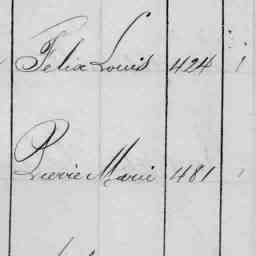 Felix Louis 424 1
Pierre Marie 481 1